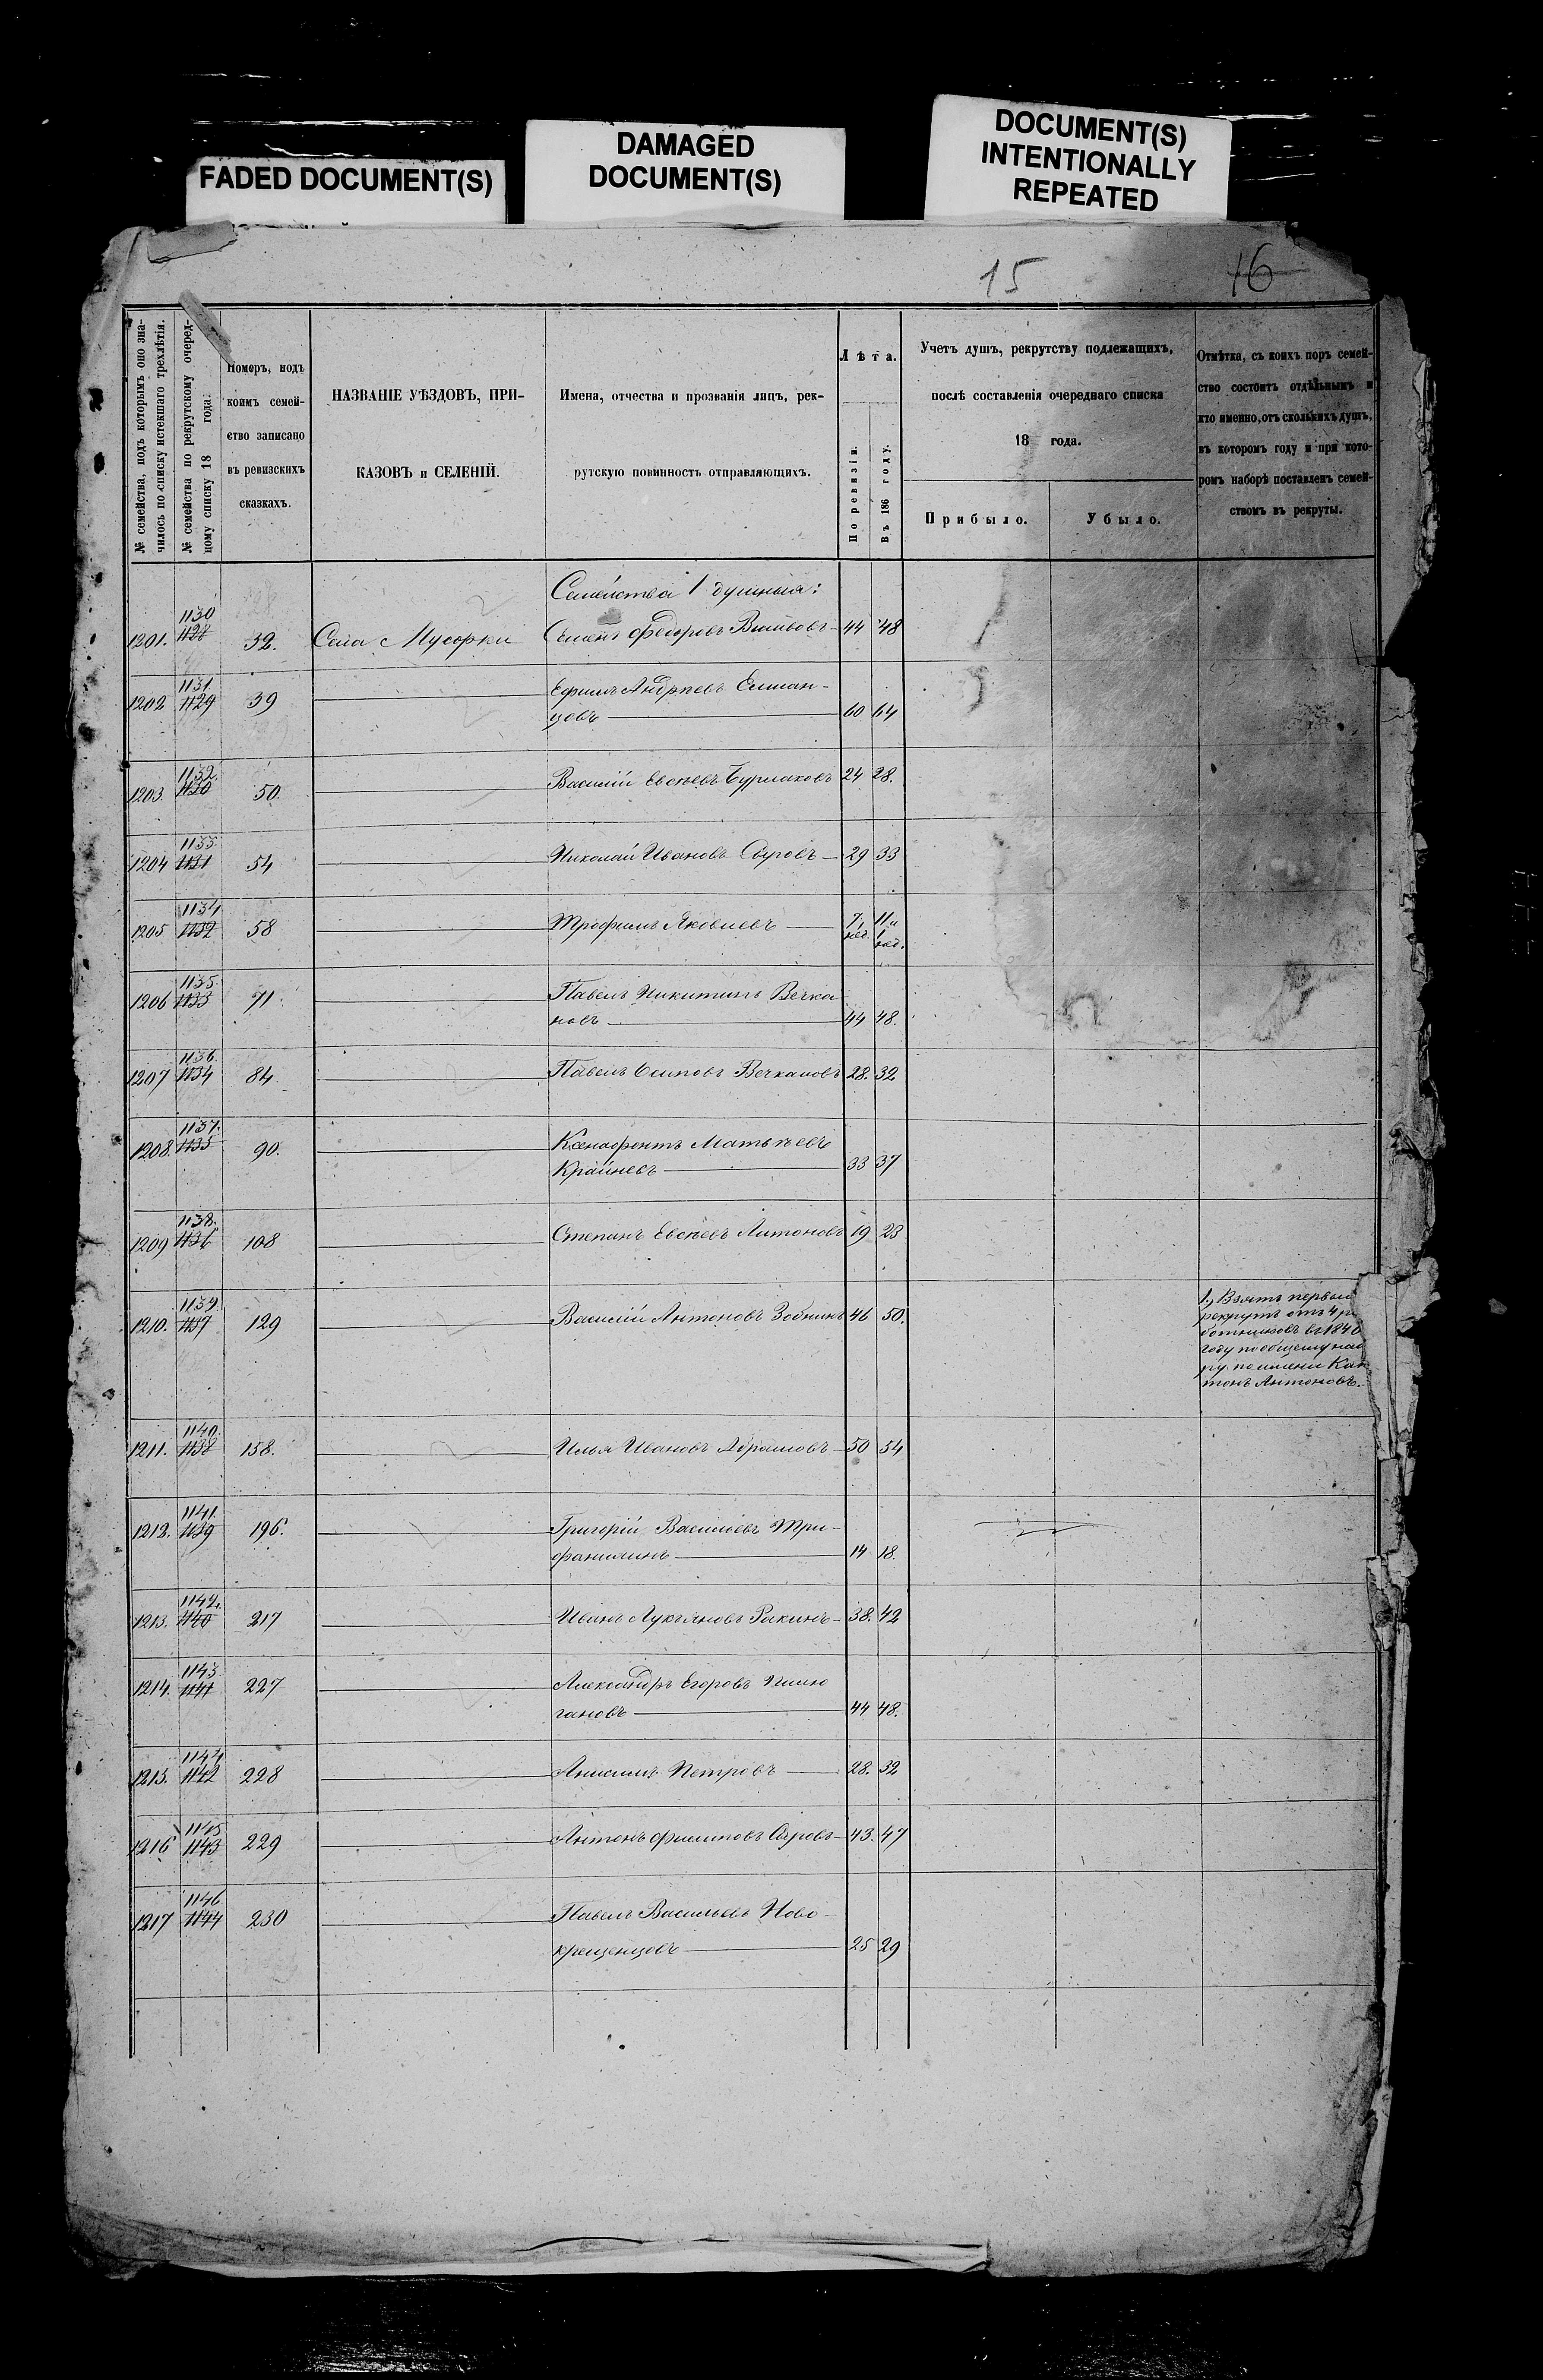 FADED DOCUMENT(S)
DAMAGED
DOCUMENT(S)
DOCUMENT(S)
INTENTIONALLY
REPEATED
15
16
№ семейства, подъ которымъ оно зна-
чилось по списку истекшаго трехлѣтія.
№ семейства по рекрутскому очеред-
ному списку 18 года.
Номеръ, подъ
коимъ семей-
ство записано
въ ревизскихъ
сказкахъ.
НАЗВАНІЕ УѢЗДОВЪ, ПРИ-
КАЗОВЪ и СЕЛЕНІЙ.
Имена, отчества и прозванія лицъ, рек-
рутскую повинность отправляющихъ.
Лѣта.
По ревизіи.
Въ 186 году.
Учетъ душъ, рекрутству подлежащихъ,
послѣ составленія очереднаго списка
18 года.
Прибыло.
Убыло.
Отмѣтка, съ коихъ поръ семей-
ство состоитъ отдѣльнымъ и
кто именно, отъ сколькихъ душъ,
въ которомъ году и при кото-
ромъ наборѣ поставленъ семей-
ствомъ въ рекруты.
Семейства 1 душныя:
1130
1201. 1128 32. Села Мусорки Семенъ Федоровъ 44 48
1131
1202 1129 39 Ефимъ Андреевъ Елшан-
цовъ 60 64
1132
1203. 1130 50. Василій Евсѣевъ Бурлаковъ 24 28.
1133
1204 1131 54 Николай Ивановъ Сыровъ 29 33
1134
1205 1132 58 Трофимъ Яковлевъ 7 нед. 11 и 1 нед.
1135
1206 1133 71 Павелъ Никитинъ Вечка
новъ 44 48.
1136
1207 1134 84 Павелъ Осиповъ Вечкановъ 28. 32
1137.
1208. 1135 90. Ксенофонтъ Матвѣевъ
Крайневъ 33 37
1138.
1209 1136 108 Степанъ Евсѣевъ Антоновъ 19 23
1139.
1210. 1137 129 Василій Антоновъ Зобнинъ 46 50.
1., Взятъ первый
рекрутъ отъ 4 ра
ботниковъ въ 1840
году по общему наб
ру по имени
Антоновъ.
1140
1211. 1138 158. Илья Ивановъ Абрамовъ 50 54
1141.
1212. 1139 196. Григорій Васильевъ Три-
фанилинъ 14 18.
1142.
1213. 1140 217 Иванъ Лукьяновъ Ракинъ 38. 42
1143
1214. 1141 227 Александръ Егоровъ
гановъ 44 48.
1144
1215. 1142 228 Анисимъ Петровъ 28. 32
1145
1216 1143 229 Антонъ Филиповъ Сыровъ 43. 47
1146
1217 1144 230 Павелъ Васильевъ Ново-
крещенцовъ 25 29